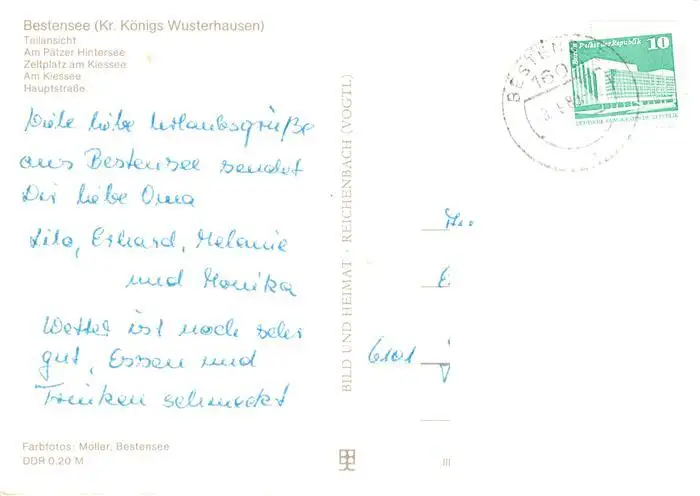 Bestensee (Kr. Königs Wusterhausen)
Teilansicht
Am Pätzer Hintersee
Zeltplatz am Kiessee
Am Kiessee
Hauptstraße
Viele liebe Urlaubsgrüße
aus Bestensee sendet
Dir liebe Oma
Lilo, Erhard, Melanie
und Monika
Wetter ist noch sehr
gut, Essen und
Trinken schmeckt
Farbfotos: Möller, Bestensee
DDR 0,20 M
BILD UND HEIMAT · REICHENBACH (VOGTL)
BESTEN
160
Palast der Republik
10
DEUTSCHE DEMOKRATISCHE REPUBLIK
6101